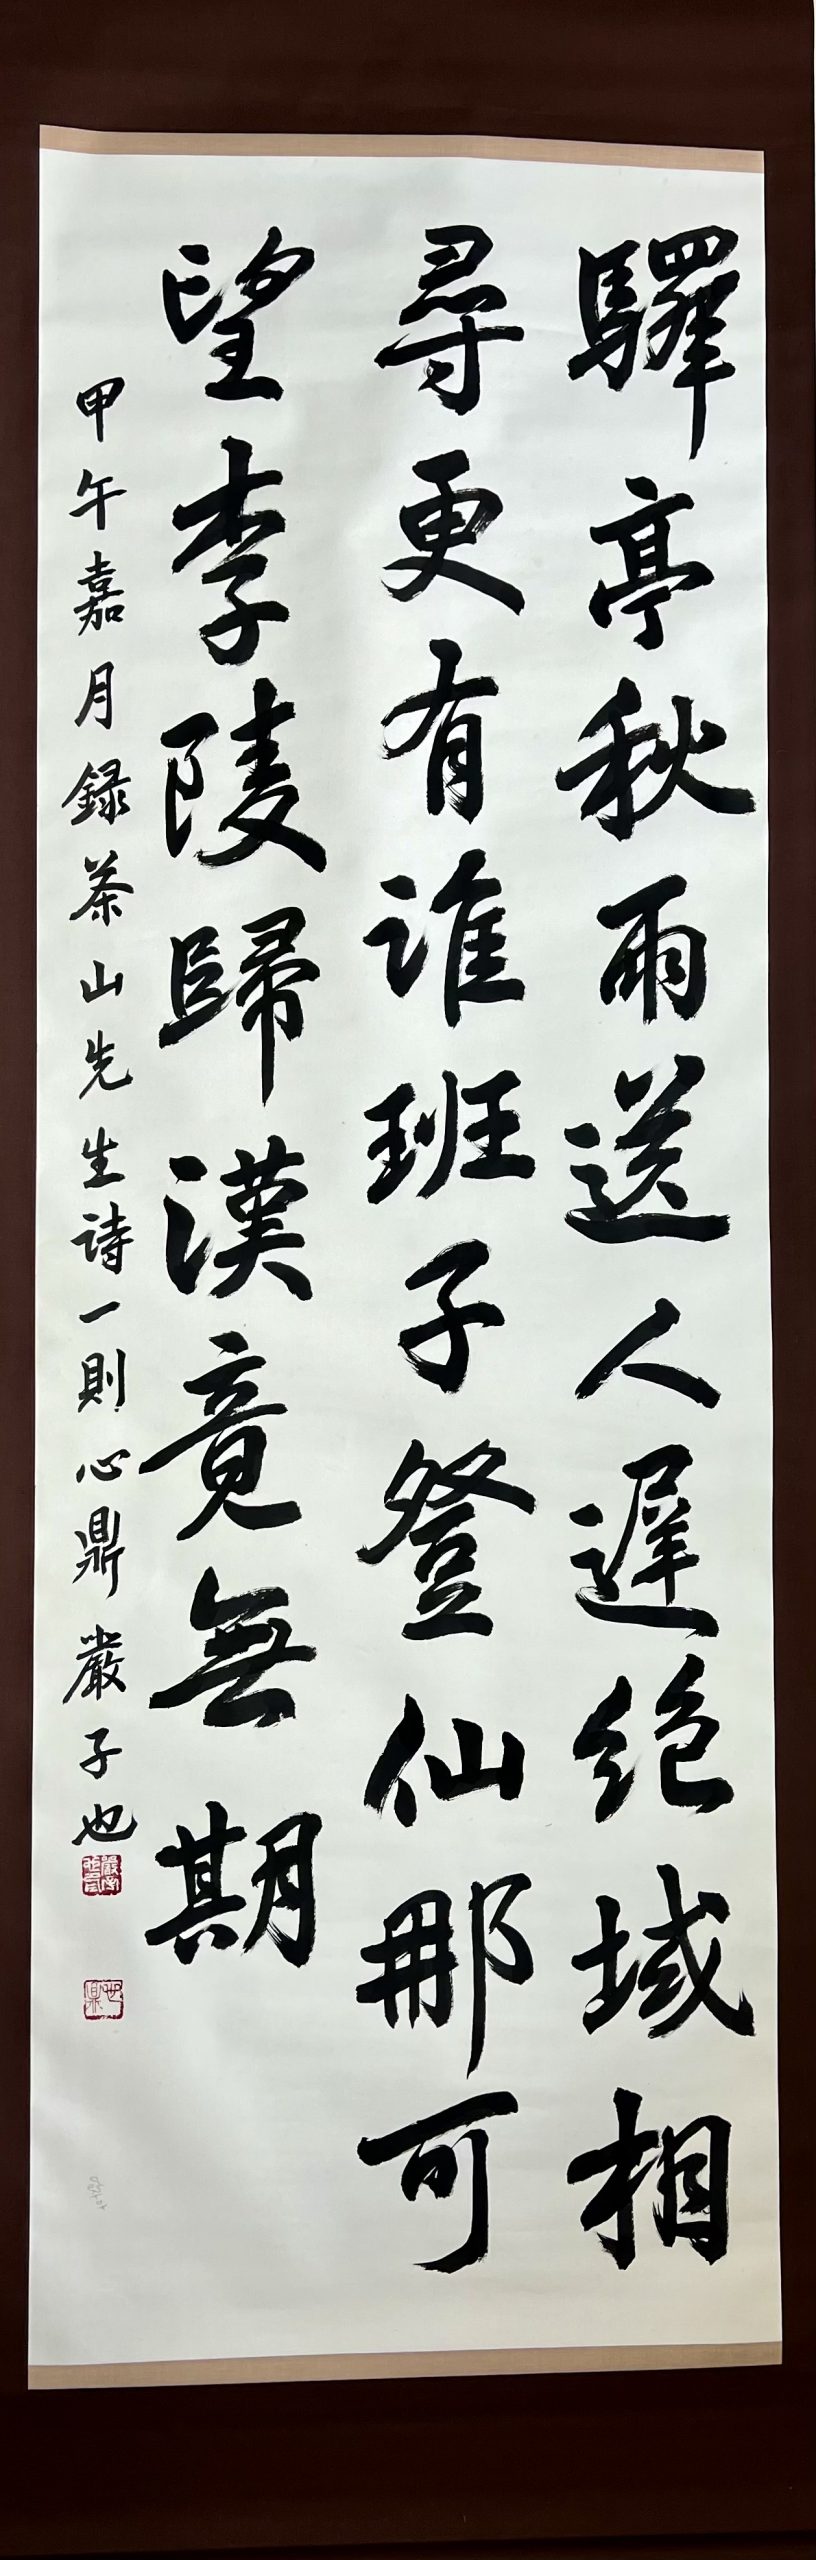 驛亭秋雨送人遲絕域相
尋更有誰班子登仙那可
望李陵歸漢竟無期
甲午嘉月録茶山先生詩一則心鼎嚴子也